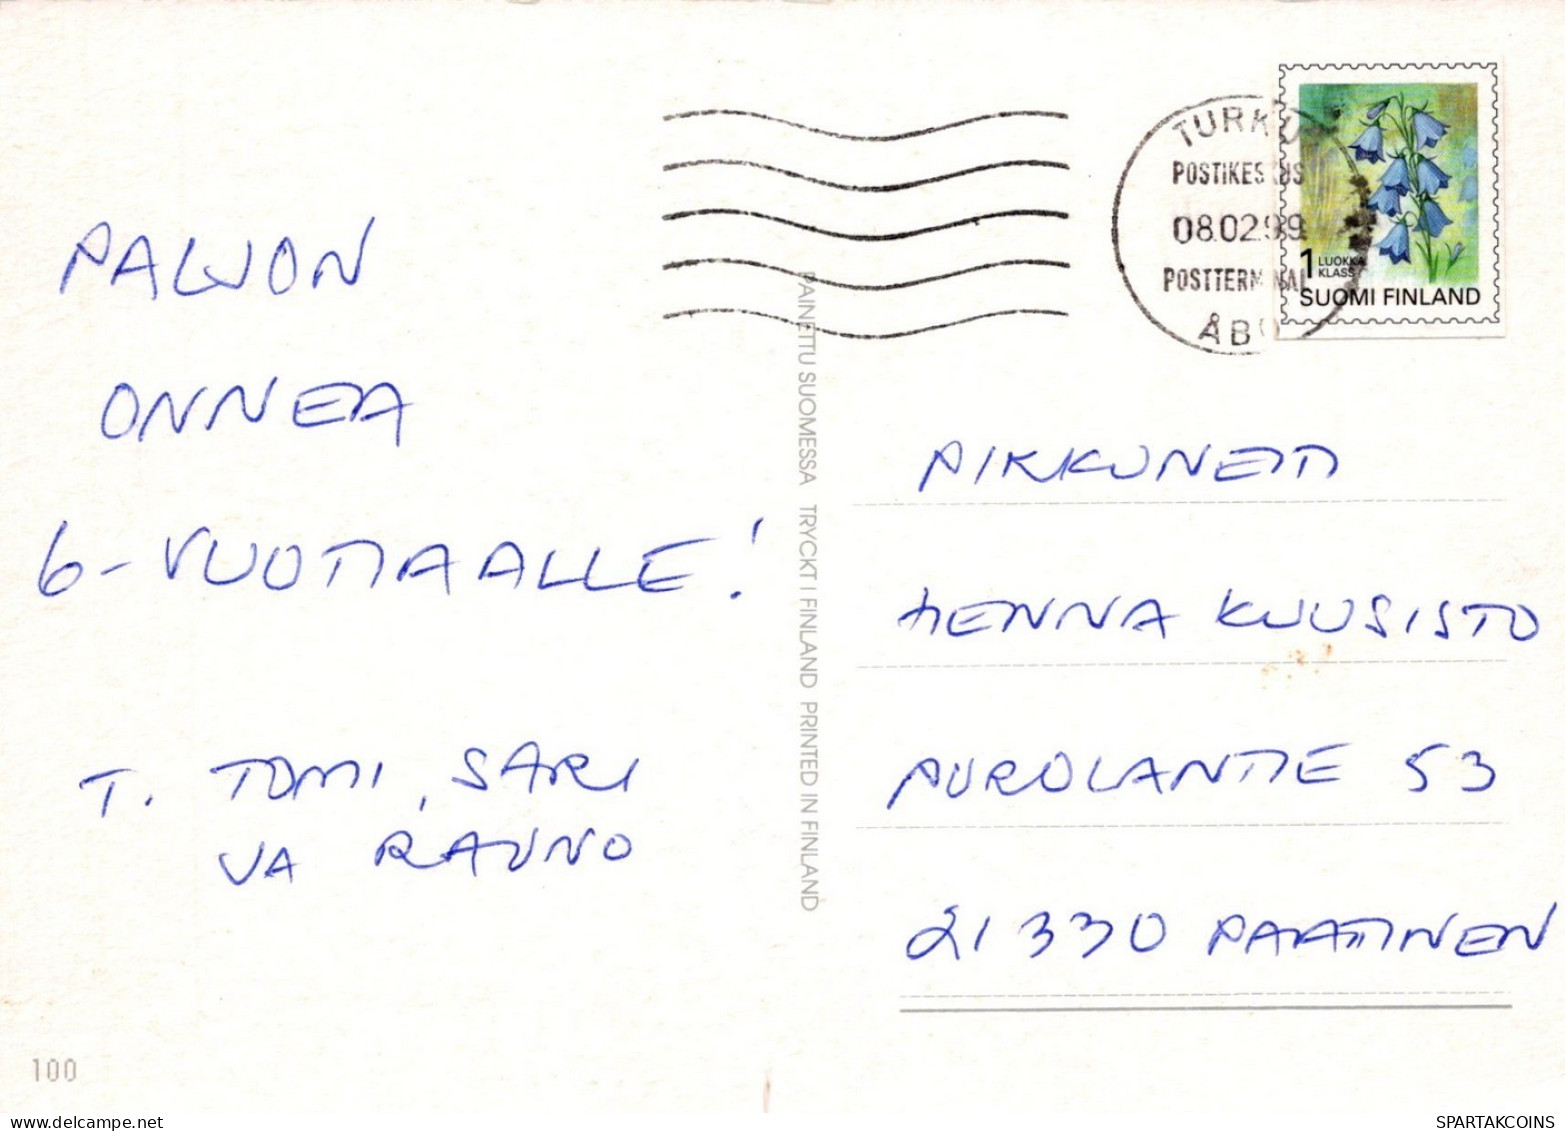 PALJON
ONNEA
6-VUOTIAALLE!
T. TOMI, SARI
VA RAUNO
100
PAINETTU SUOMESSA TRYCKT I FINLAND PRINTED IN FINLAND
TURKU
POSTIKESKUS
08.02.99
POSTTERMINAL
ÅBO
1 LUOKKA
KLASS
SUOMI FINLAND
PIKKUNEITI
HENNA KUUSISTO
PUROLANTIE 53
21330 PAATTINEN
SPARTAKCOINS